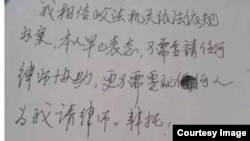 我相信政法机关依法依规
办案。本人早已表态，不需要请任何
律师协助，更不需要任何人
为我请律师。拜托！
Courtesy Image